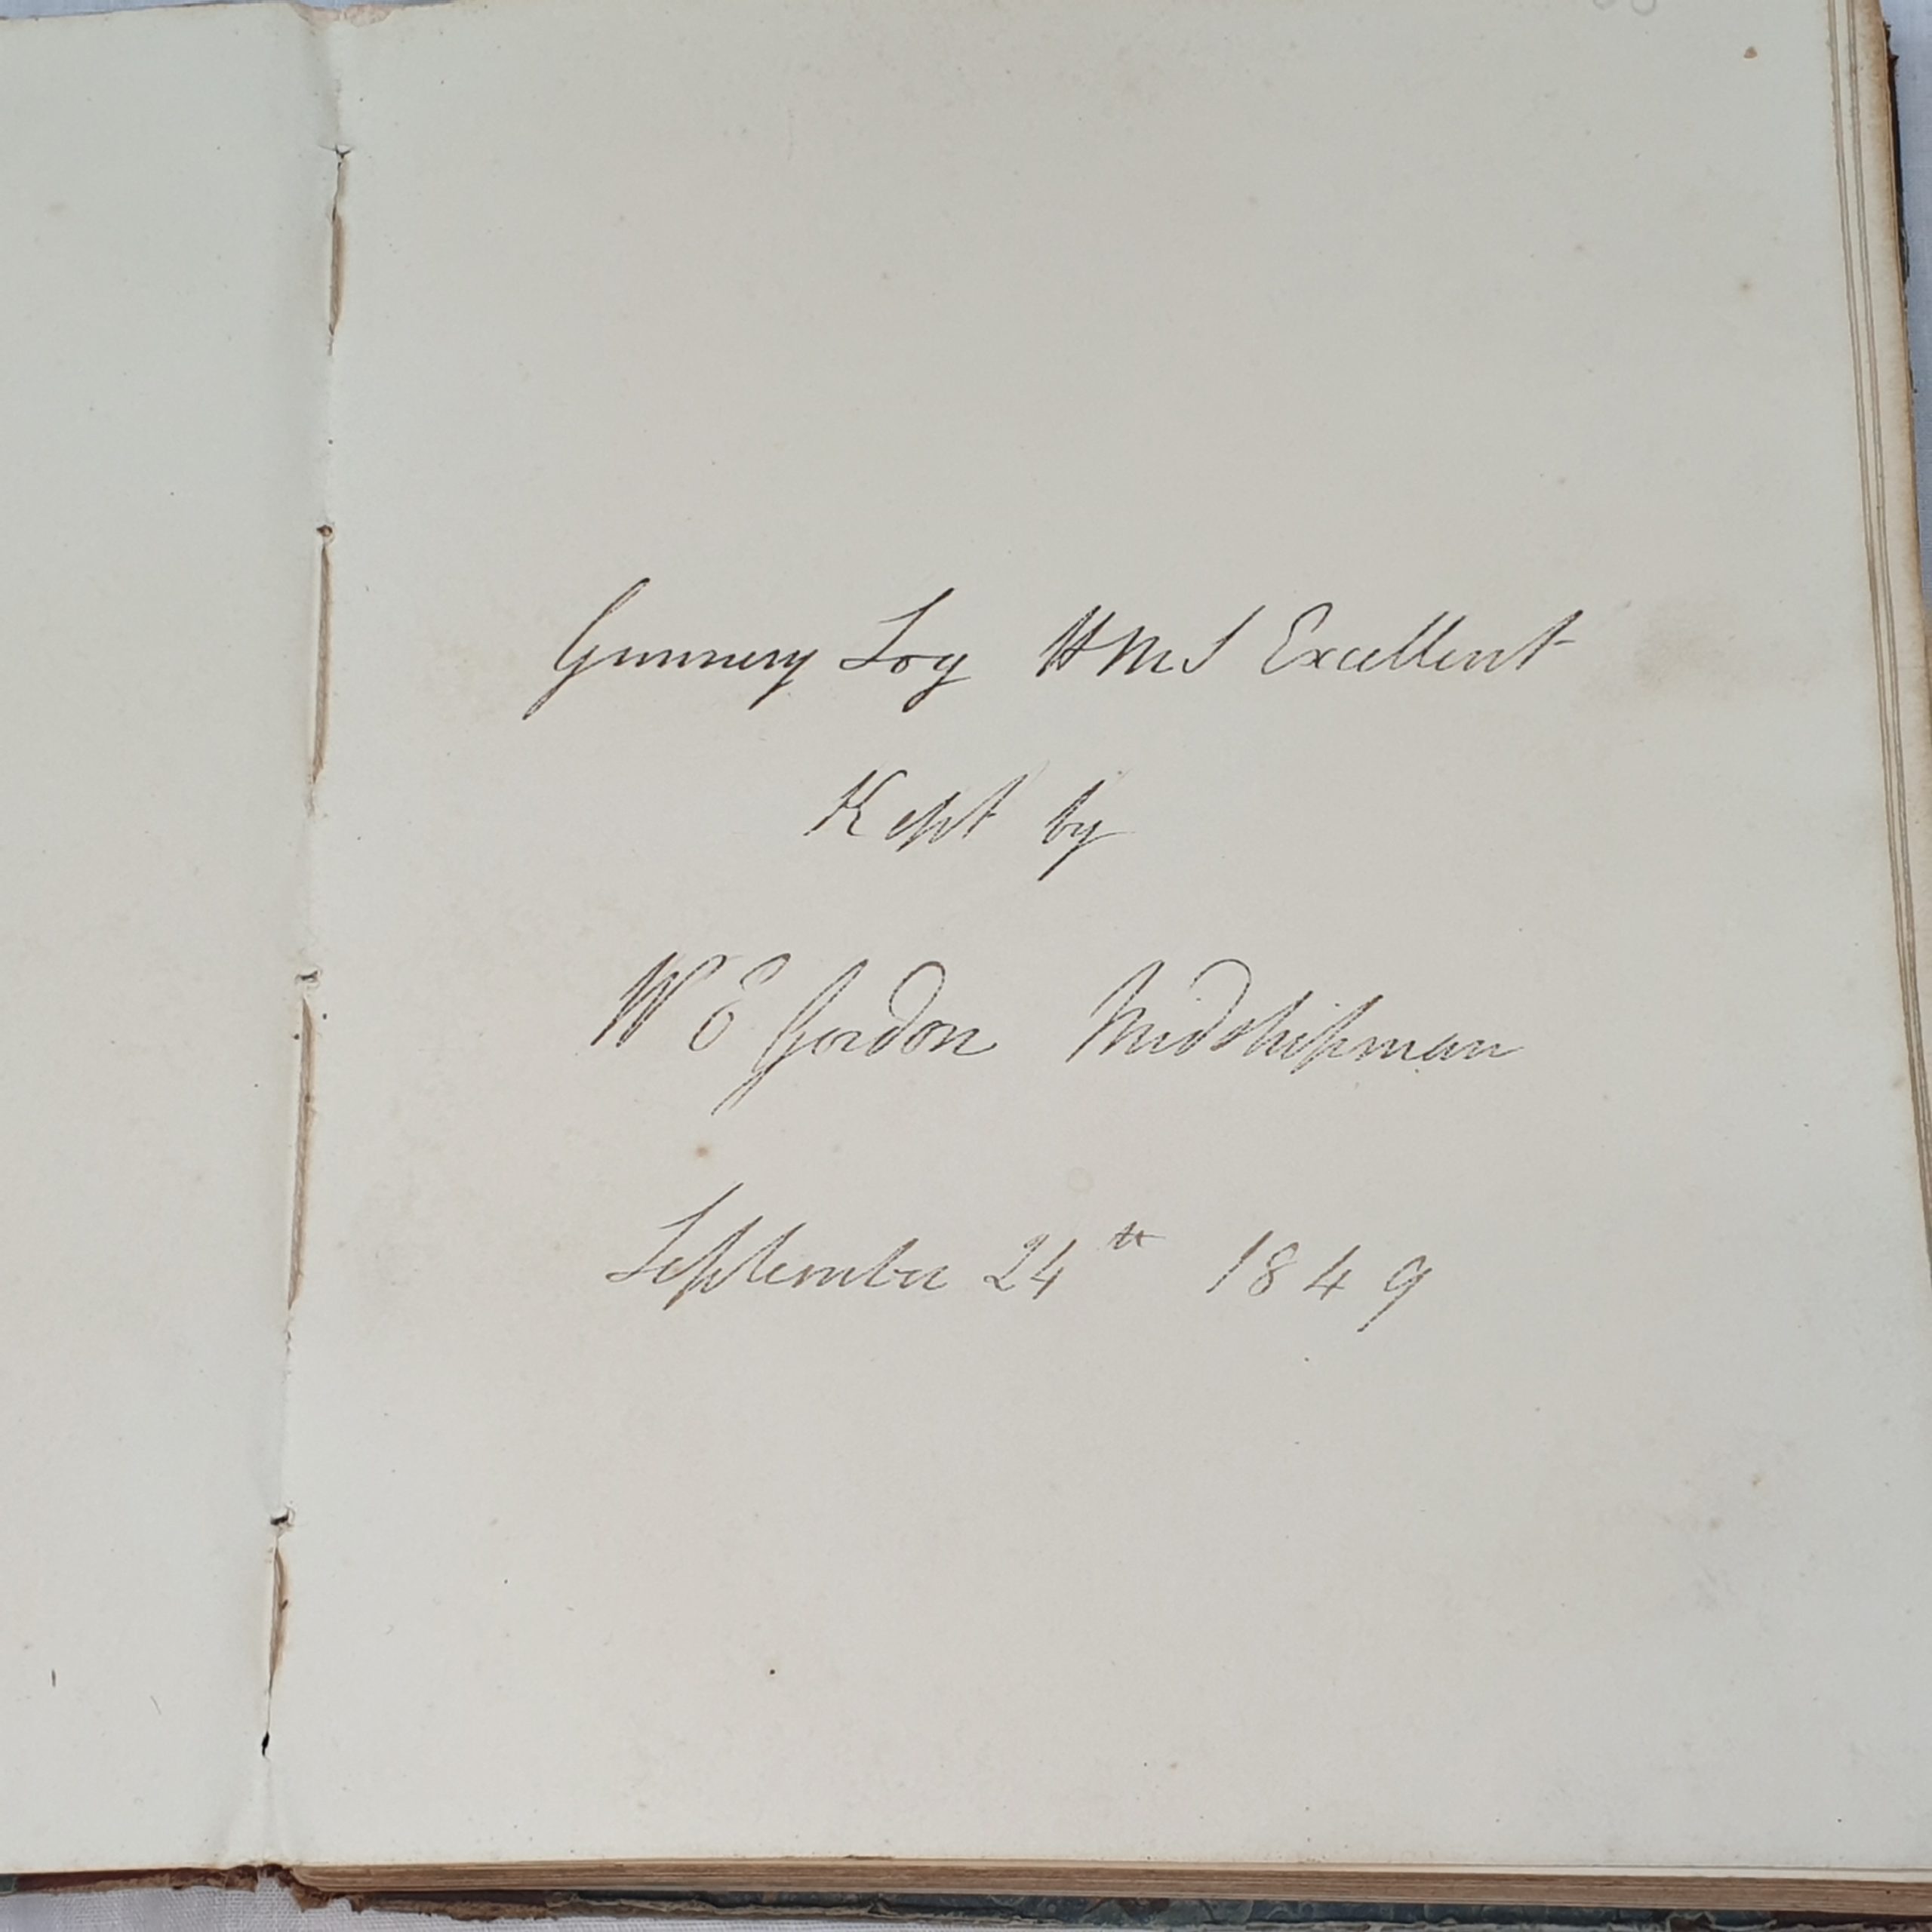 Gunnery Log HMS Excellent
Kept by
W E Gordon Midshipman
September 24th 1849